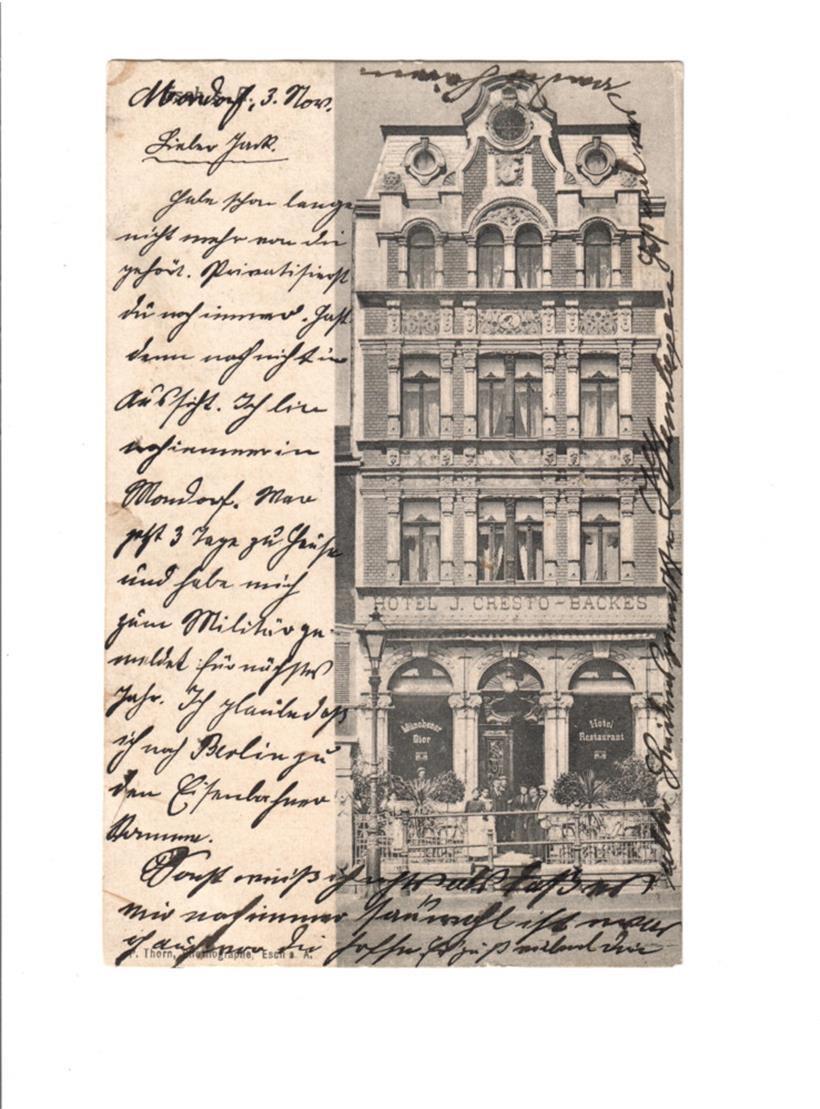 Mondorf, 3. Nov.
Lieber Jack.
Habe schon lange
nicht mehr von dir
gehört. Privatisierst
du noch immer. Hast
denn noch nicht in
Aussicht. Ich bin
noch immer in
Mondorf. War
jetzt 3 Tage zu Hause
und habe mich
zum Militär ge-
meldet für nächstes
Jahr. Ich glaube daß
ich nach Berlin zu
den Eisenbahner
komme.
Sonst weiß ich nichts als daß es
mir noch immer sauwohl ist was
ich auch von dir hoffe. Es grüßt
HOTEL J. CRESTO-BACKES
Münchener
Bier
Hotel
Restaurant
P. Thorn, Photographe, Esch s. A.